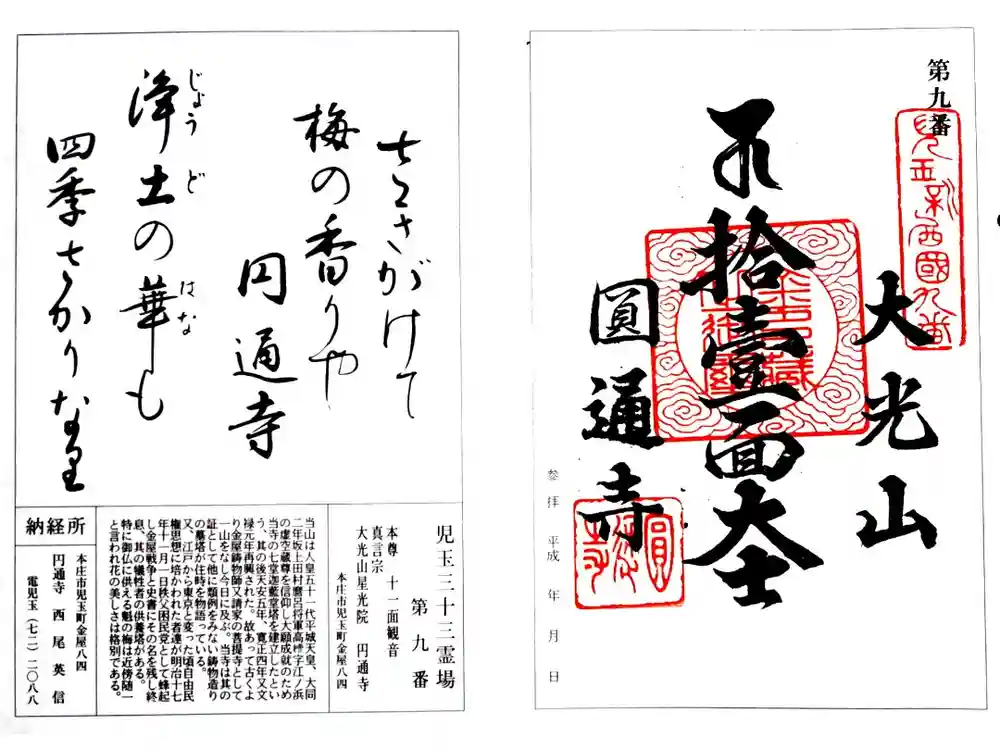 さきがけて
梅の香りや
円通寺
浄土の華も
じょうど
はな
四季さかりなり
児玉三十三霊場
第九番
本尊 十一面観音
真言宗
大光山星光院 円通寺
本庄市児玉町金屋八四
当山は人皇五十一代平城天皇、大同
二年坂上田村麿呂将軍高椁字江ノ浜
の虚空蔵尊を信仰し大願成就のため
当寺の七堂迦藍堂塔を建立したとい
う、其の後天安五年、寛正四年又文
禄元年再興された。故あって古くよ
り金屋鋳物師又請家の菩提寺として
一山をなし今日に及ぶ。当寺は其の
証として他に類例をみない鋳物造り
の墓塔が往時を物語っている。
又、江戸から東京と変った頃自由民
権思想に培かわれた者達が明治十七
年十一月一日秩父困民党として蜂起
し金屋戦争と史書にその名を残し終
息、其の犠牲者の供養塔がある。
特に御仏に供える魁の梅は近傍随一
と言われ花の美しさは格別である。
納経所
本庄市児玉町金屋八四
円通寺 西尾英信
電児玉(七二)二〇八八
第九番
児玉新西國九番
大光山
拾壹面大士
圓通寺
参拝 平成 年 月 日